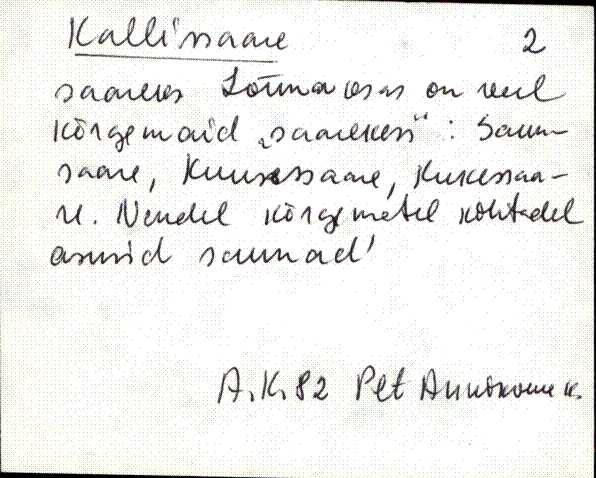 Kallissaare 2
saarekes Lõuna osas on veel
kõrgemaid „saarekesi": Saun-
saare, Kuusessaare, Kukessaa-
re. Nendel kõrgematel kohtadel
asusid saunad'
A.K. 82 Plt